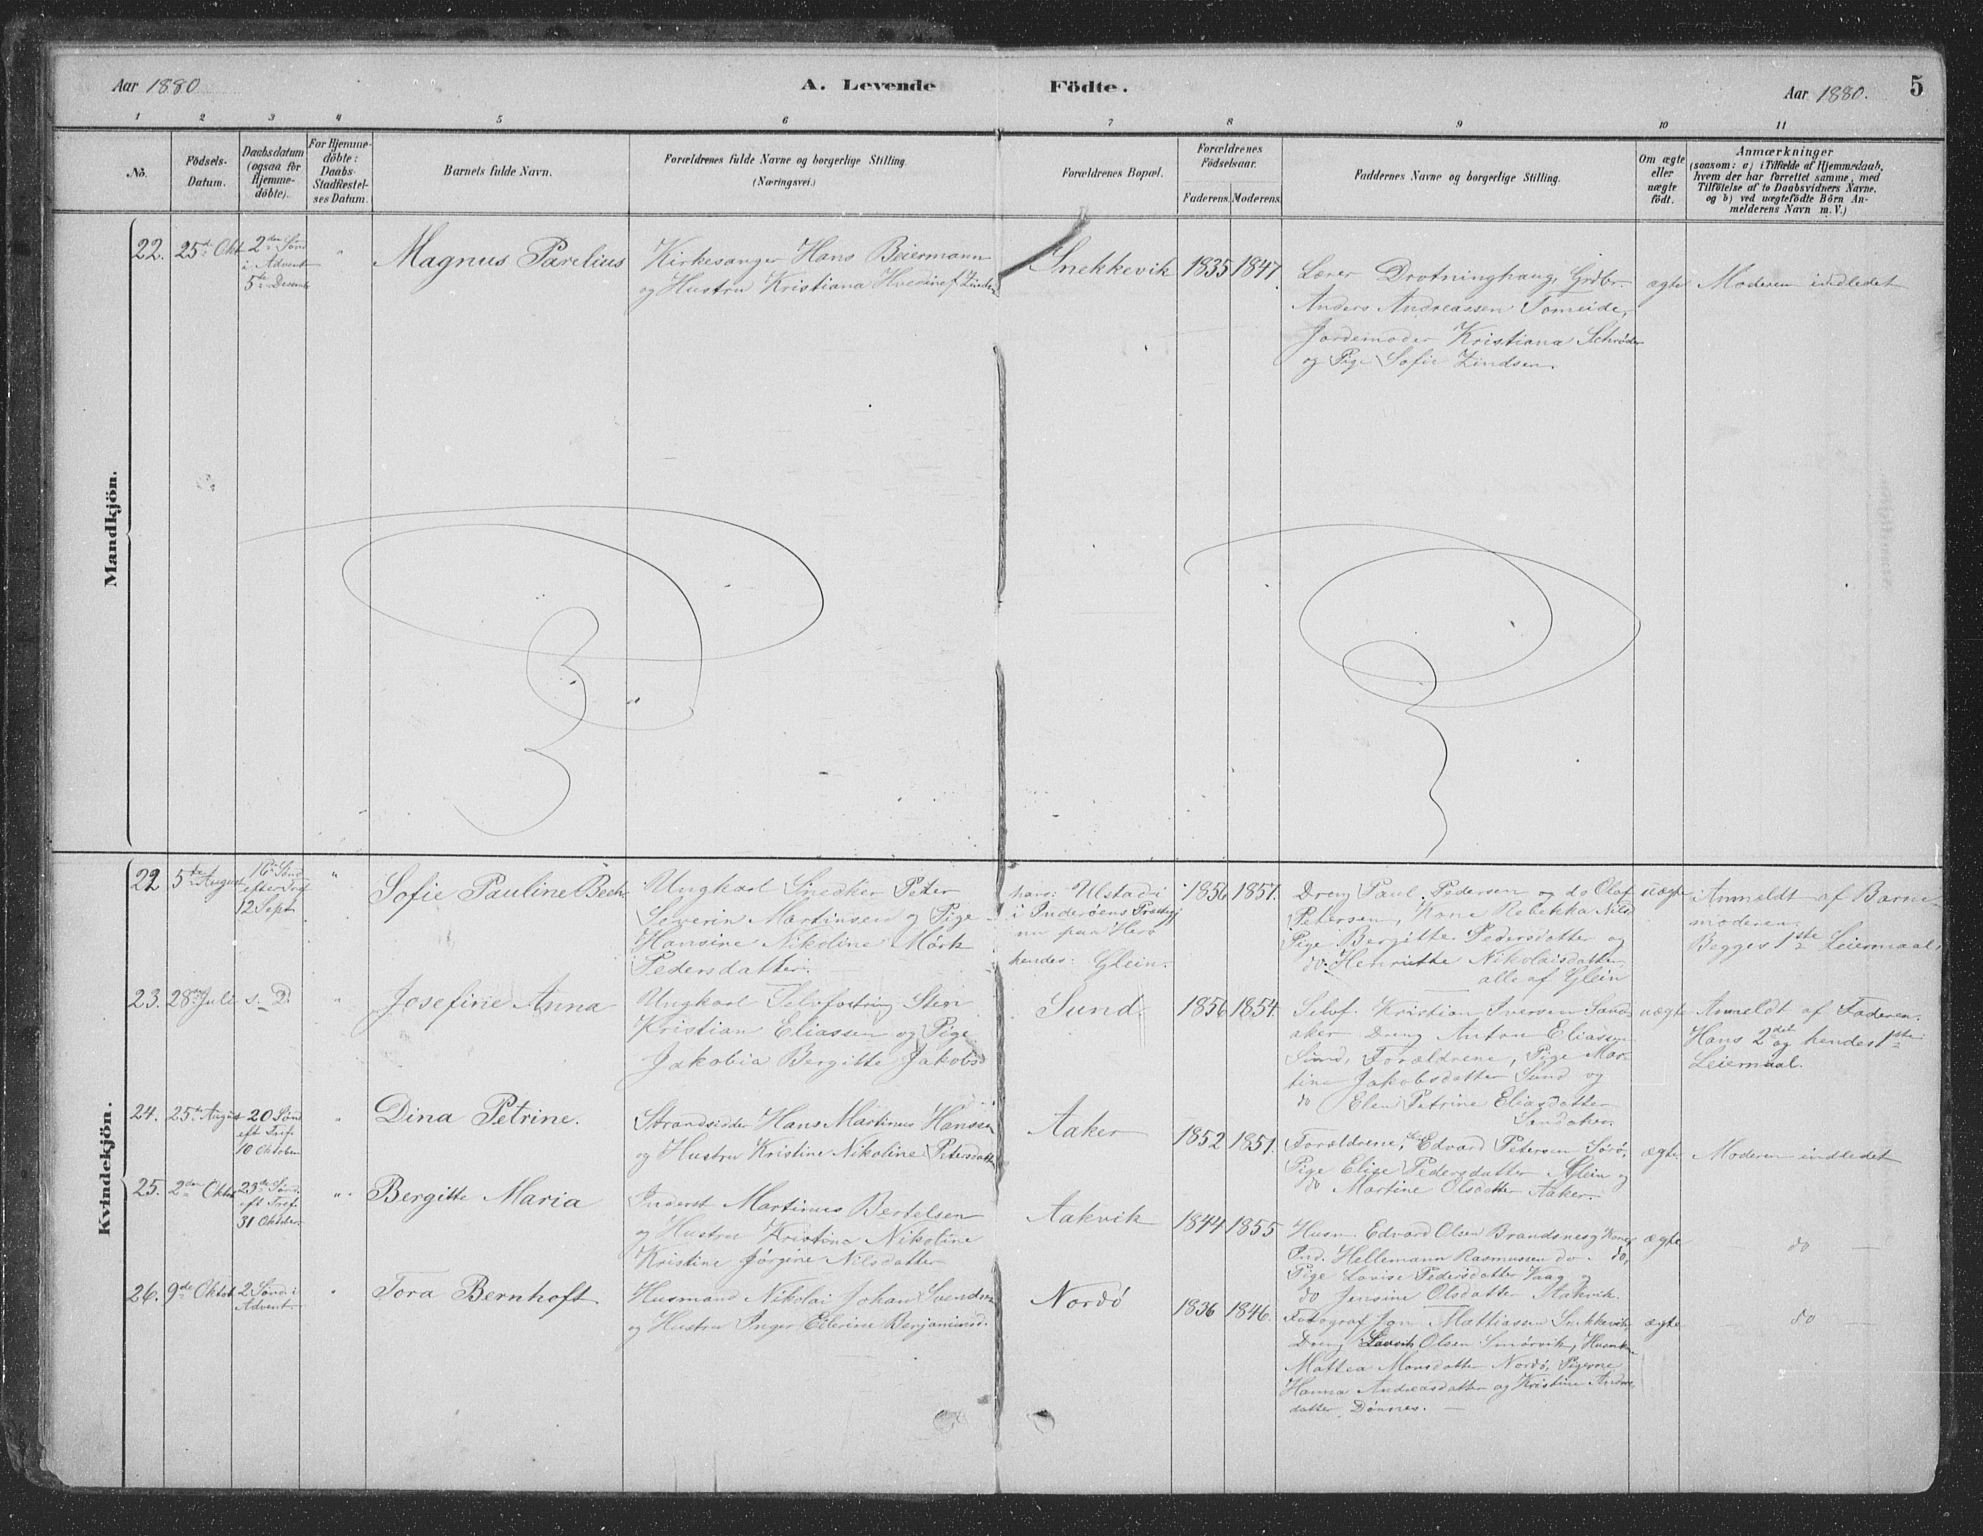 Aar 1880
A. Levende Födte.
Aar 1880.
5
1 2 3 4 5 6 7 8 9 10 11
No.
Födsels-
Datum.
Daabsdatum
(ogsaa for
Hjemme-
döbte).
For Hjemme-
döbte:
Daabs-
Stadfæstel-
ses Datum.
Barnets fulde Navn.
Forældrenes fulde Navne og borgerlige Stilling.
(Næringsvei.)
Forældrenes Bopæl.
Forældrenes
Födselsaar.
Faderens. Moderens.
Faddernes Navne og borgerlige Stilling.
Om ægte
eller
uægte
födt.
Anmærkninger
(saasom: a) i Tilfælde af Hjemmedaab,
hvem der har forrettet samme, med
Tilföielse af to Daabsvidners Navne,
og b) ved uægtefödte Börn An-
melderens Navn m. V.)
Mandkjön.
22.
25de Okt
2den Sönd
i Advent
5te Decemb
"
Magnus Parelius
Kirkesanger Hans Beiermann
og Hustru Kristiana
Snekkevik
1835
1847
Lærer Drotninghaug, Grdbr.
Anders Andreassen Tomeide,
Jordemoder Kristiana Schrøder
og Pige Sofie Zindsen.
ægte
Moderen indledet
Kvindekjön.
22.
5te August
16de Sönd
efter Tref
12 Sept.
"
Sofie Pauline Bech
Ungkarl Snedker Peter
Severin Martinsen og Pige
Hansine Nikoline Mørk
Pedersdatter.
hans: Ulstad i
i Inderöens Præstgj
nu paa Herö
hendes: Glein.
1856
1857.
Dreng Paul Pedersen og do Olaf
Petersen, Kone Rebekka Nilsd
Pige Bergitte Pedersdatter og
do. Henriette Nikolaisdatter
alle af Glein
uægte
Anmeldt af Barne-
moderen.
Begges 1ste Leiermaal.
23.
28de Juli
s. D.
"
Josefine Anna
Ungkarl Selvfostring Sten
Kristian Eliassen og Pige
Jakobia Bergitte Jakobsd
Sund.
1856
1854.
Selvf. Kristian Iversen Sand-
aker Dreng Anton Eliassen
Sund, Forældrene, Pige Mar-
tine Jakobsdatter Sund og
do Elen Petrine Eliasdatter
Sandaker.
uægte
Anmeldt af Faderen.
Hans 2det og hendes 1ste
Leiermaal.
24.
25de August
20 Sönd
eft Tref.
10 Oktober
"
Dina Petrine.
Strandsidder Hans Martinus Hansen
og Hustru Kristine Nikoline Petersdatter
Aaker
1852
1857.
Forældrene, Edvard Petersen Sörö,
Pige Elise Pedersdatter Glein og
do Martine Olsdatter Aaker.
ægte
Moderen indledet
25.
2den Oktbr
23de Sönd.
eft Tref.
31 Oktober
"
Bergitte Maria
Inderst Martinus Bertelsen
og Hustru Kristina Nikoline
Kristine Jørgine Nilsdatter
Aakvik
1844
1855
Husm Edvard Olsen Brandsnes og Kone,
Ind. Hellemann Rasmussen do. do,
Pige Lovise Pedersdatter Vaag og
do Jensine Olsdatter Aakvik.
ægte
do
26.
9de Oktob
2 Sönd i
Advent
"
Tora Bernhoft
Husmand Nikolai Johan Svendsen
og Hustru Inger Ellerine Benjaminsd.
Nordö
1836
1846.
Fotograf Jan Mattiassen Snekkevik,
Dreng Olsen Smörvik,
Mattea Monsdatter Nordö, Pigerne
Hanna Andreasdatter og Kristine Andreas
datter Dönnes.
ægte
do